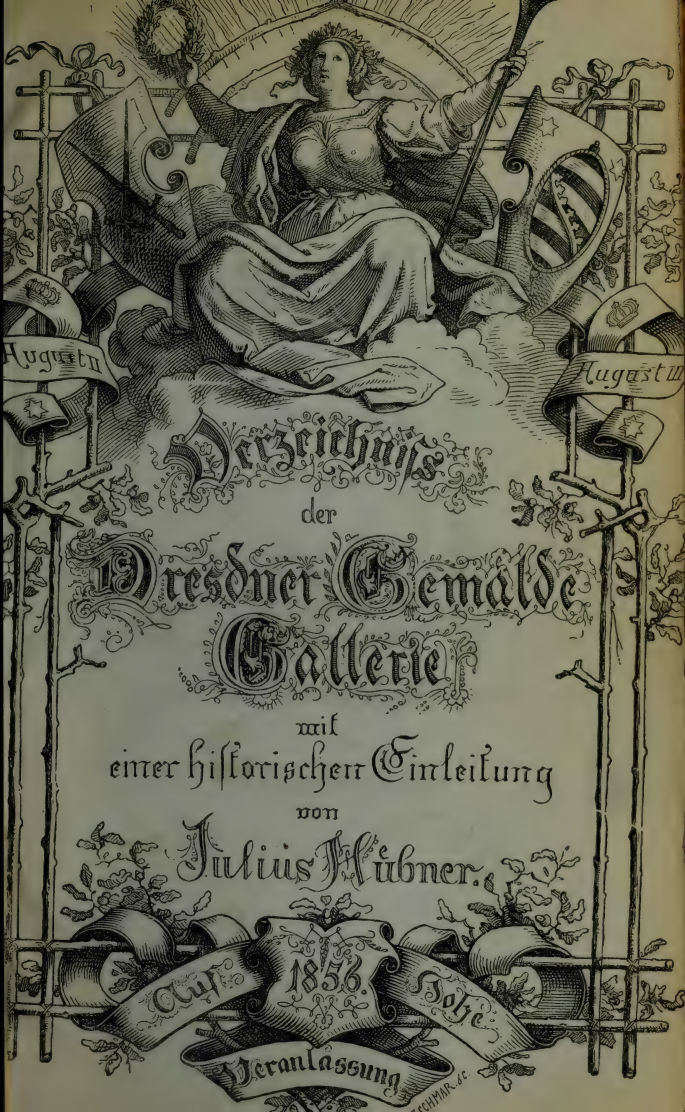 August II
August III
Verzeichniss
der
Dresdner Gemälde
Gallerie
mit
einer historischen Einleitung
von
Julius Hübner.
Auf 1856 Hohe
Veranlassung